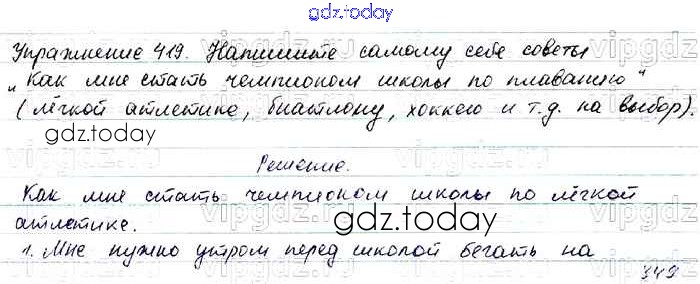 gdz.today
Упражнение 419. Напишите самому себе советы
"Как мне стать чемпионом школы по плаванию"
(лёгкой атлетике, биатлону, хоккею и т.д. на выбор).
gdz.today
Решение.
Как мне стать чемпионом школы по лёгкой
атлетике.
gdz.today
1. Мне нужно утром перед школой бегать на
349